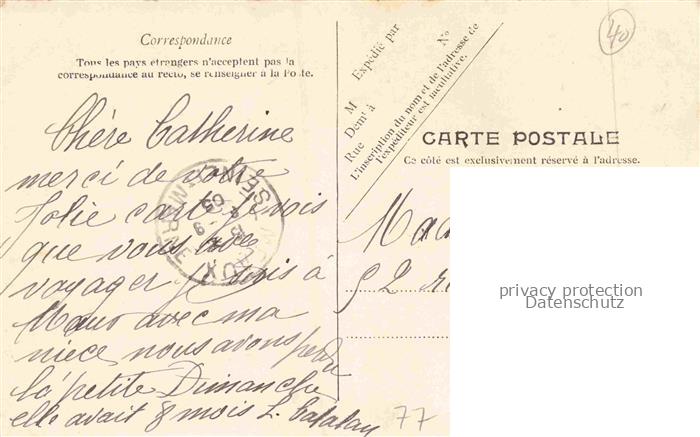 Correspondance
Tous les pays étrangers n'acceptent pas la
correspondance au recto, se renseigner à la Poste.
Chère Catherine
merci de votre
Jolie carte je vois
que vous avez
voyager je suis à
Maux avec ma
niece nous avons perdu
la petite Dimanche
elle avait 8 mois L.
M Expédié par
Demt à
Rue N°
L'inscription du nom et de l'adresse de
l'expéditeur est facultative.
40
CARTE POSTALE
Ce côté est exclusivement réservé à l'adresse.
SEINE
MARNE
05
Mad
52 r
privacy protection
Datenschutz
77